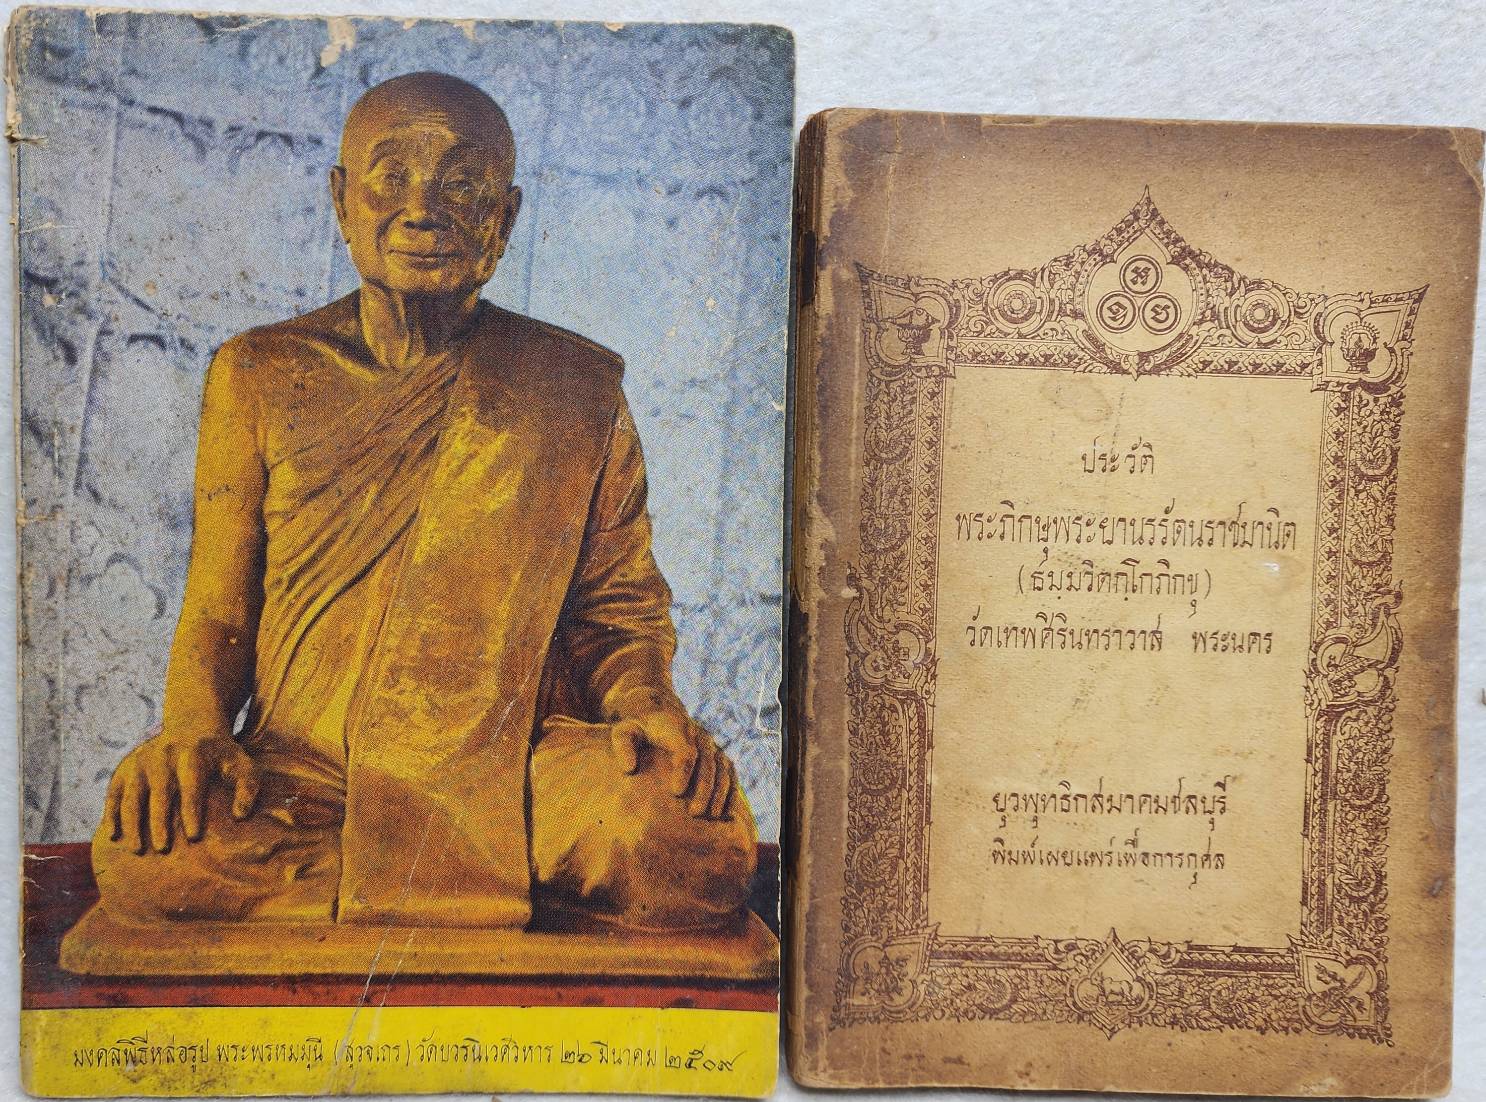 มงคลพิธีหล่อรูป พระพรหมมุนี (สุวจเถร) วัดบวรนิเวศวิหาร ๒๖ มีนาคม ๒๕๐๙
ประวัติ
พระภิกษุพระยานรรัตนราชมานิต
(ธมฺมวิตกฺโกภิกขุ)
วัดเทพศิรินทราวาส พระนคร
ยุวพุทธิกสมาคมชลบุรี
พิมพ์เผยแพร่เพื่อการกุศล